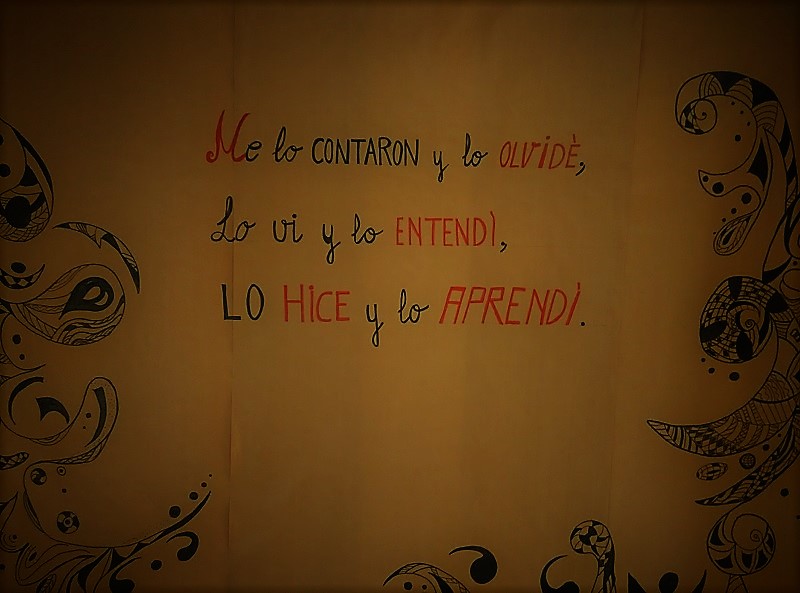 Me lo CONTARON y lo OLViDÈ,
Lo vi y lo ENTENDÌ,
LO HiCE y lo APRENDÌ.